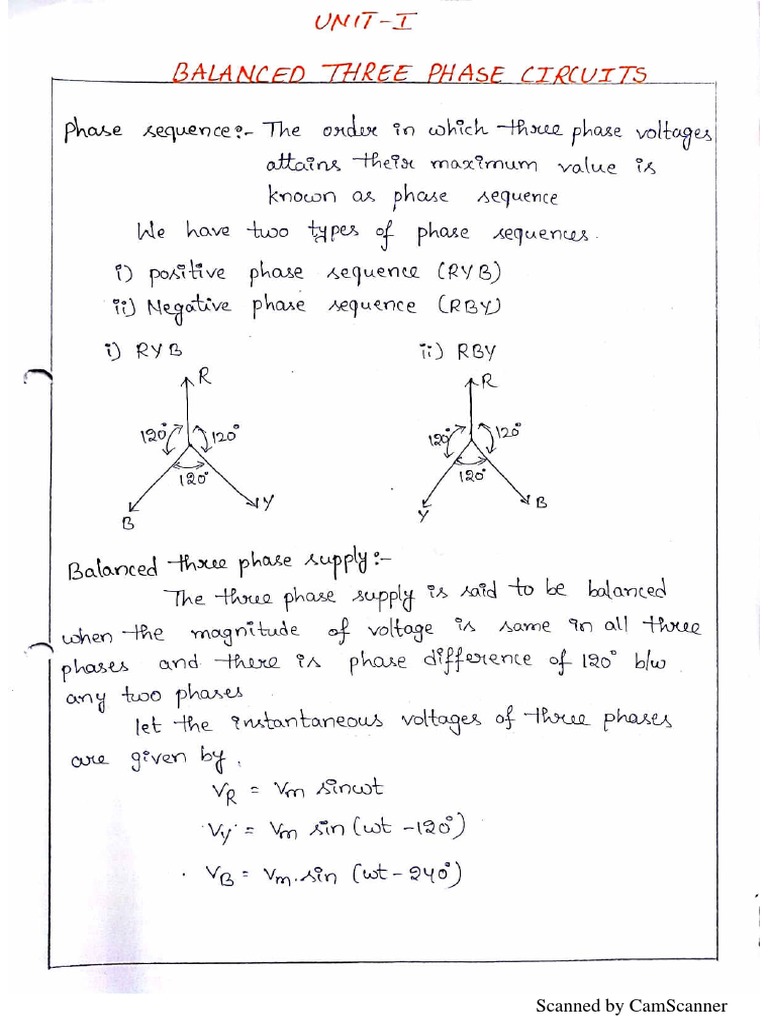 UNIT-I
BALANCED THREE PHASE CIRCUITS
Phase sequence:- The order in which three phase voltages
attains their maximum value is
known as phase sequence
We have two types of phase sequences.
i) positive phase sequence (RYB)
ii) Negative phase sequence (RBY)
i) RYB ii) RBY
R R
120° 120° 120° 120°
120° 120°
B Y Y B
Balanced three phase supply:-
The three phase supply is said to be balanced
when the magnitude of voltage is same in all three
phases and there is phase difference of 120° b/w
any two phases
let the instantaneous voltages of three phases
are given by,
VR = Vm sinwt
Vy = Vm sin (wt -120°)
VB = Vm.sin (wt - 240°)
Scanned by CamScanner